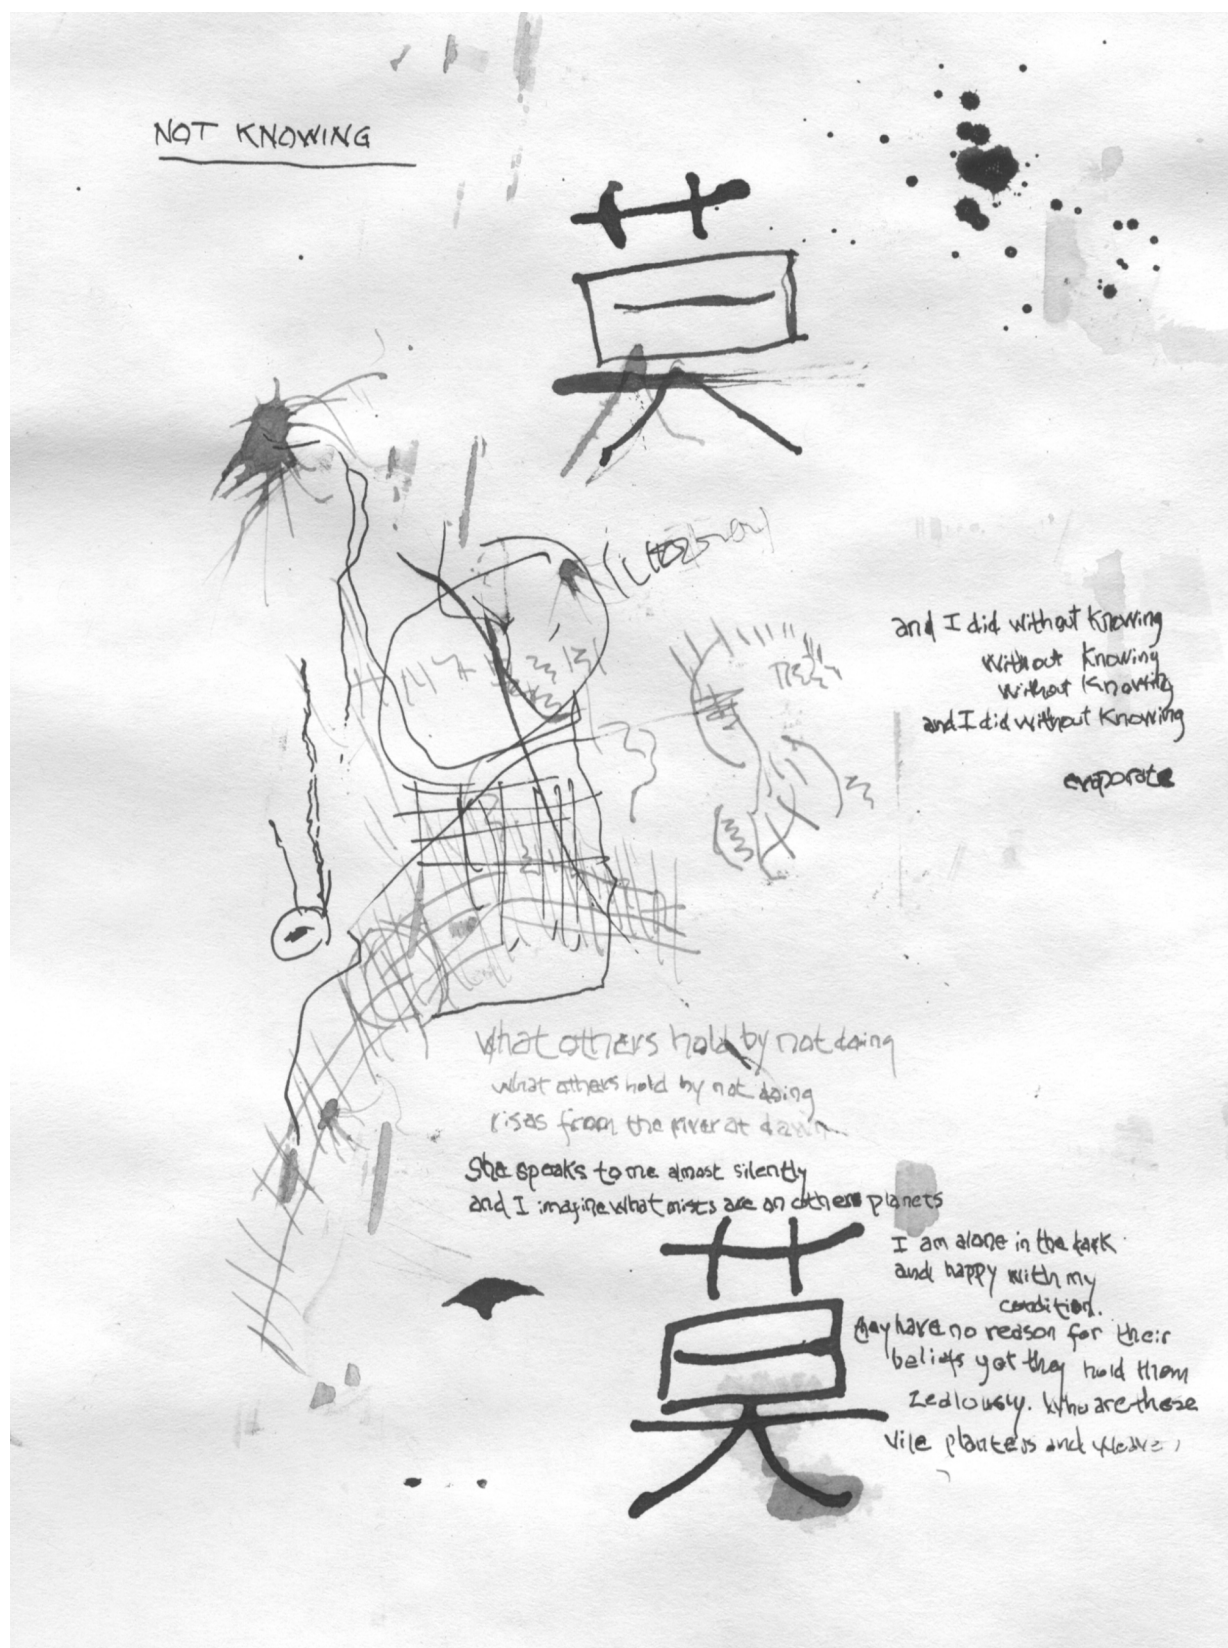 NOT KNOWING
莫
and I did without knowing
without knowing
without knowing
and I did without knowing
evaporate
What others hold by not doing
what others hold by not doing
rises from the river at dawn...
She speaks to me almost silently
and I imagine what mists are on other planets
莫
I am alone in the dark
and happy with my
condition.
they have no reason for their
beliefs yet they hold them
zealously. Who are these
vile planters and